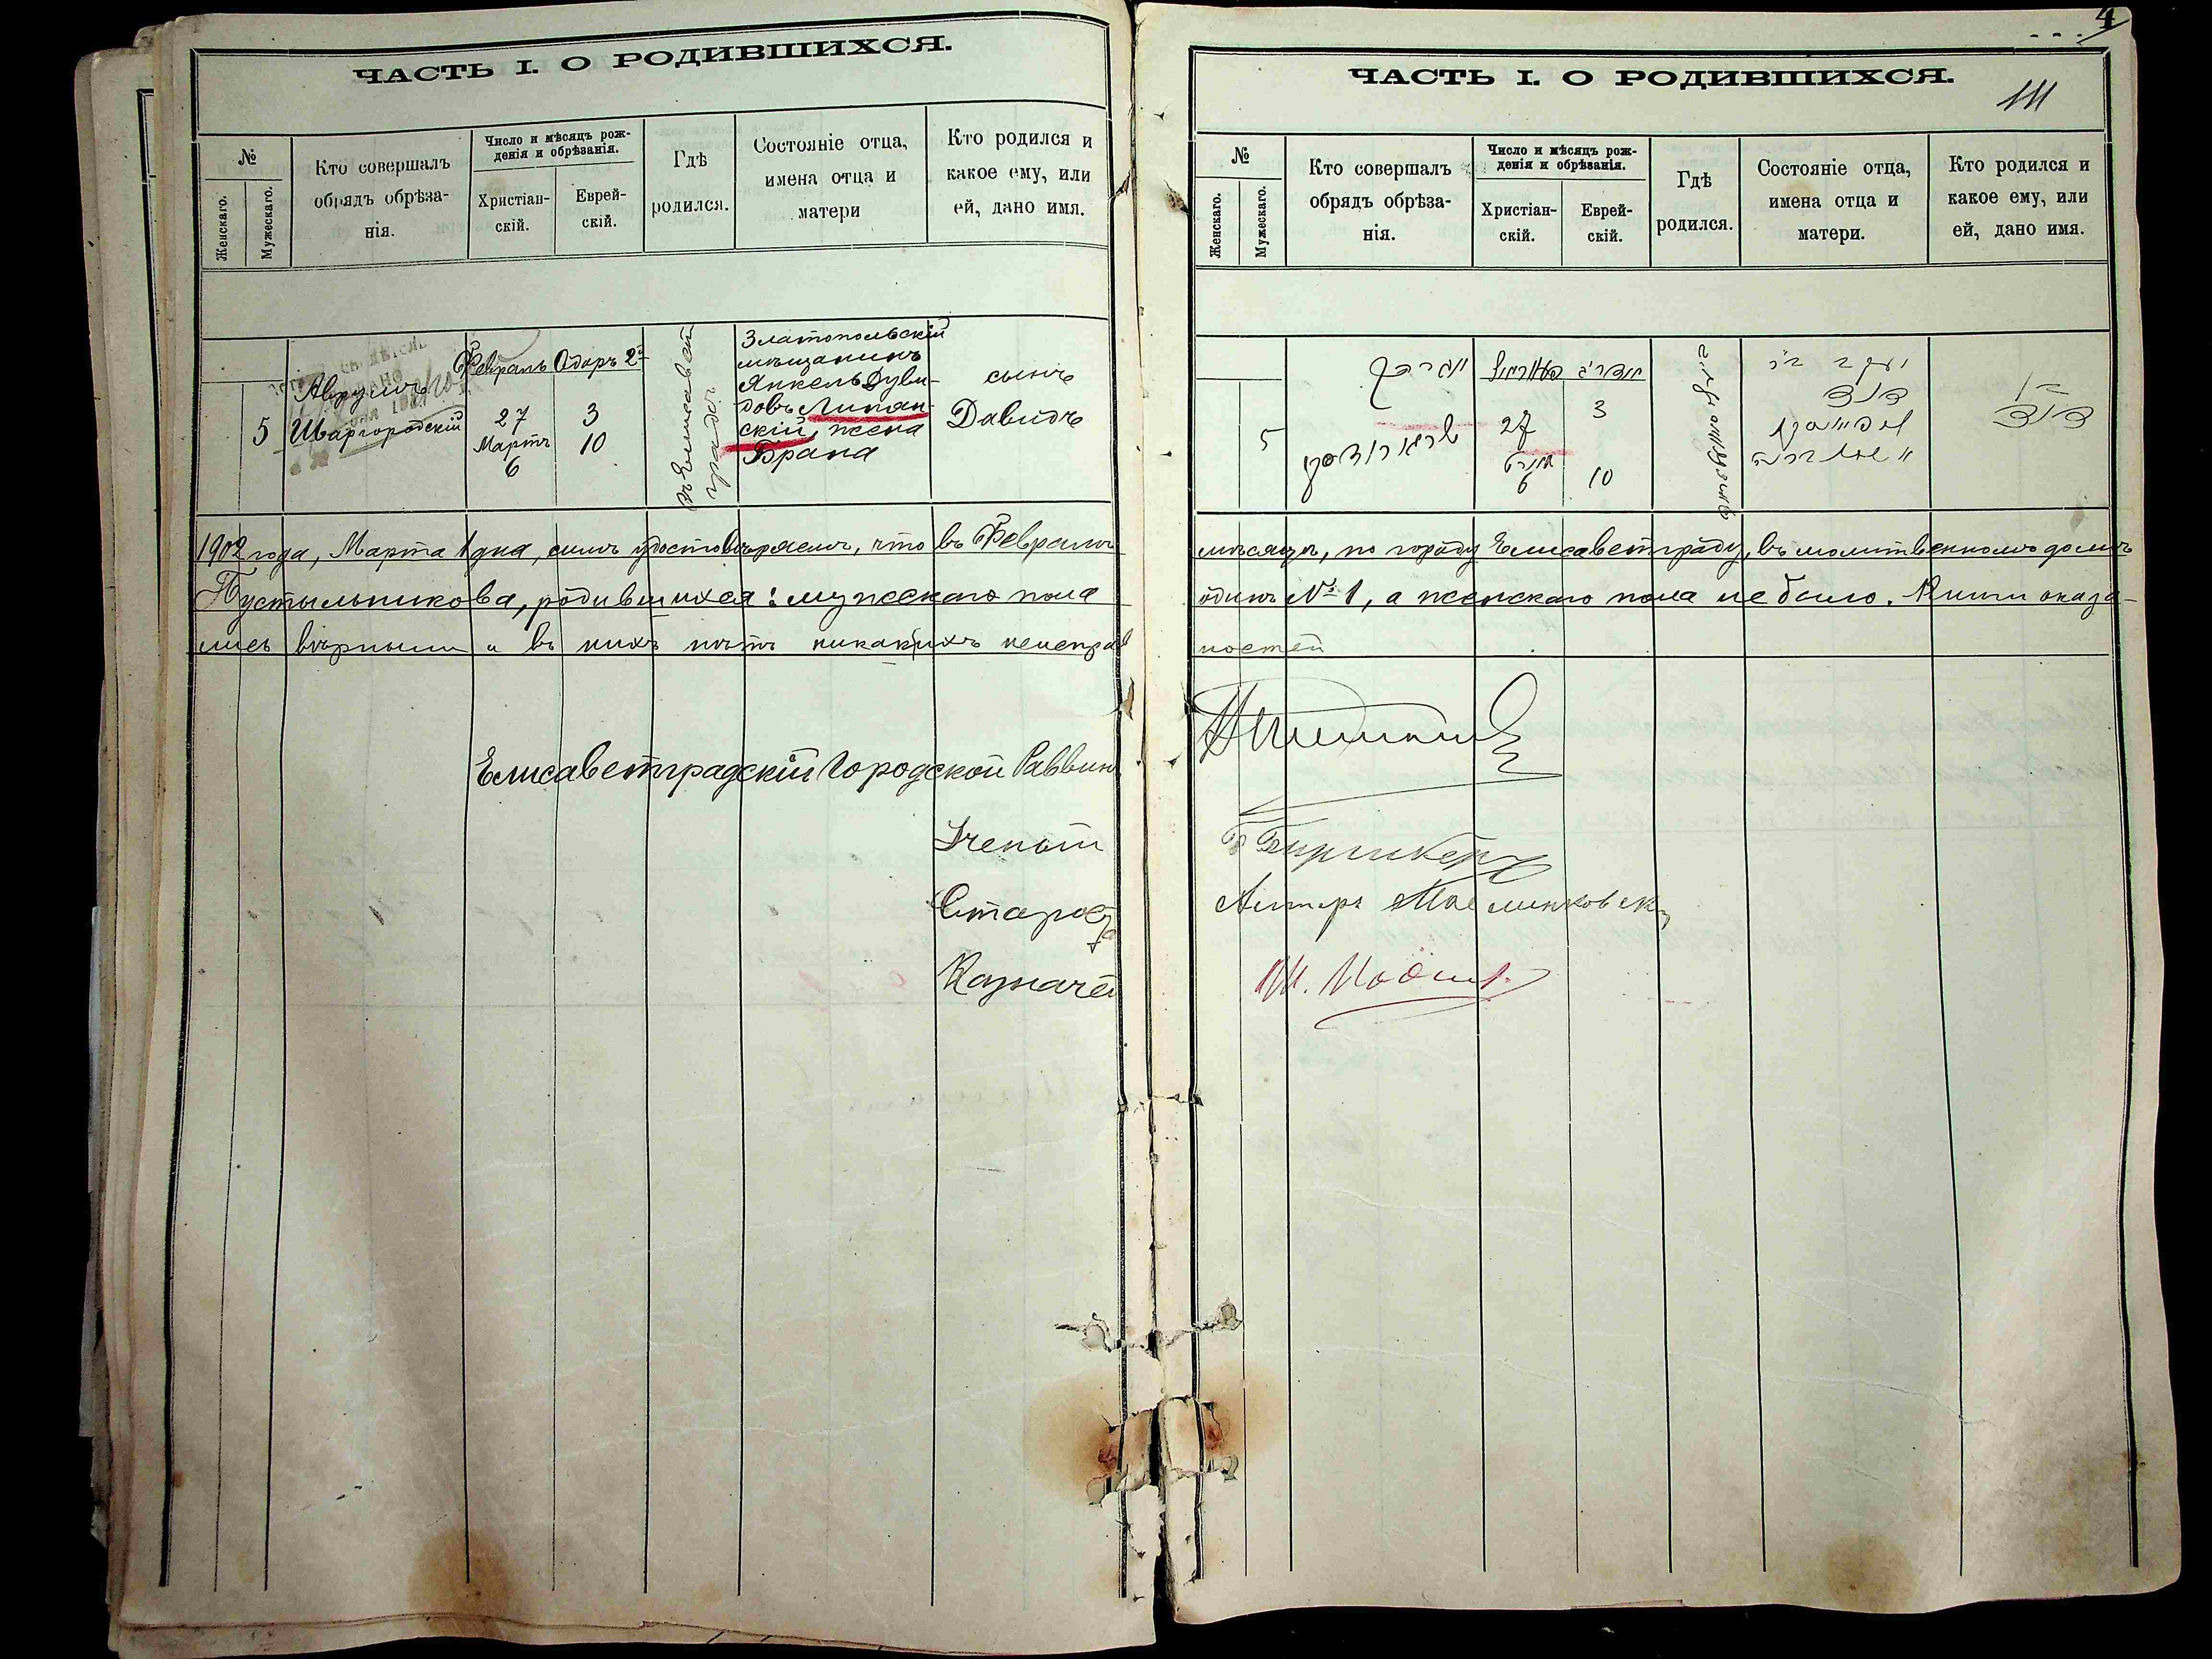 ЧАСТЬ I. О РОДИВШИХСЯ.
№
Женскаго.
Мужескаго.
Кто совершалъ
обрядъ обрѣза-
нія.
Число и мѣсяцъ рож-
денія и обрѣзанія.
Христіан-
скій.
Еврей-
скій.
Гдѣ
родился.
Состояніе отца,
имена отца и
матери
Кто родился и
какое ему, или
ей, дано имя.
5
Аврумъ
Шваргородскій
Февраль
27
Мартъ
6
Одаръ 2й
3
10
въ Елисавет
градѣ
Златопольскій
мѣщанинъ
Янкель Дуви-
довъ Липян-
скій, жена
Брана
сынъ
Давидъ
1902 года, Марта 1 дня, симъ удостовѣряемъ, что въ Февралѣ
Пустыльникова, родившихся: мужескаго пола
лись вѣрными и въ нихъ нѣтъ никакихъ неисправ
Елисаветградскій Городской Раввинъ
Ученый
Староста
Казначей
4
ЧАСТЬ I. О РОДИВШИХСЯ.
№
Женскаго.
Мужескаго.
Кто совершалъ
обрядъ обрѣза-
нія.
Число и мѣсяцъ рож-
денія и обрѣзанія.
Христіан-
скій.
Еврей-
скій.
Гдѣ
родился.
Состояніе отца,
имена отца и
матери.
Кто родился и
какое ему, или
ей, дано имя.
5
27
6
3
10
יעקב בר
דוד
בן
דוד
мѣсяцѣ, по городу Елисаветграду, въ молитвенномъ домѣ
одинъ № 1, а женскаго пола не было. Книги оказа-
ностей